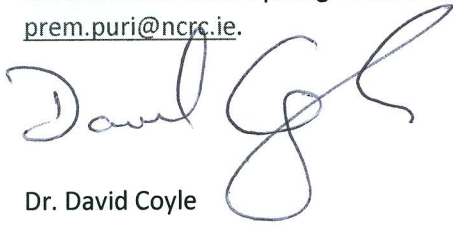 prem.puri@ncrc.ie.
David Coyle
Dr. David Coyle